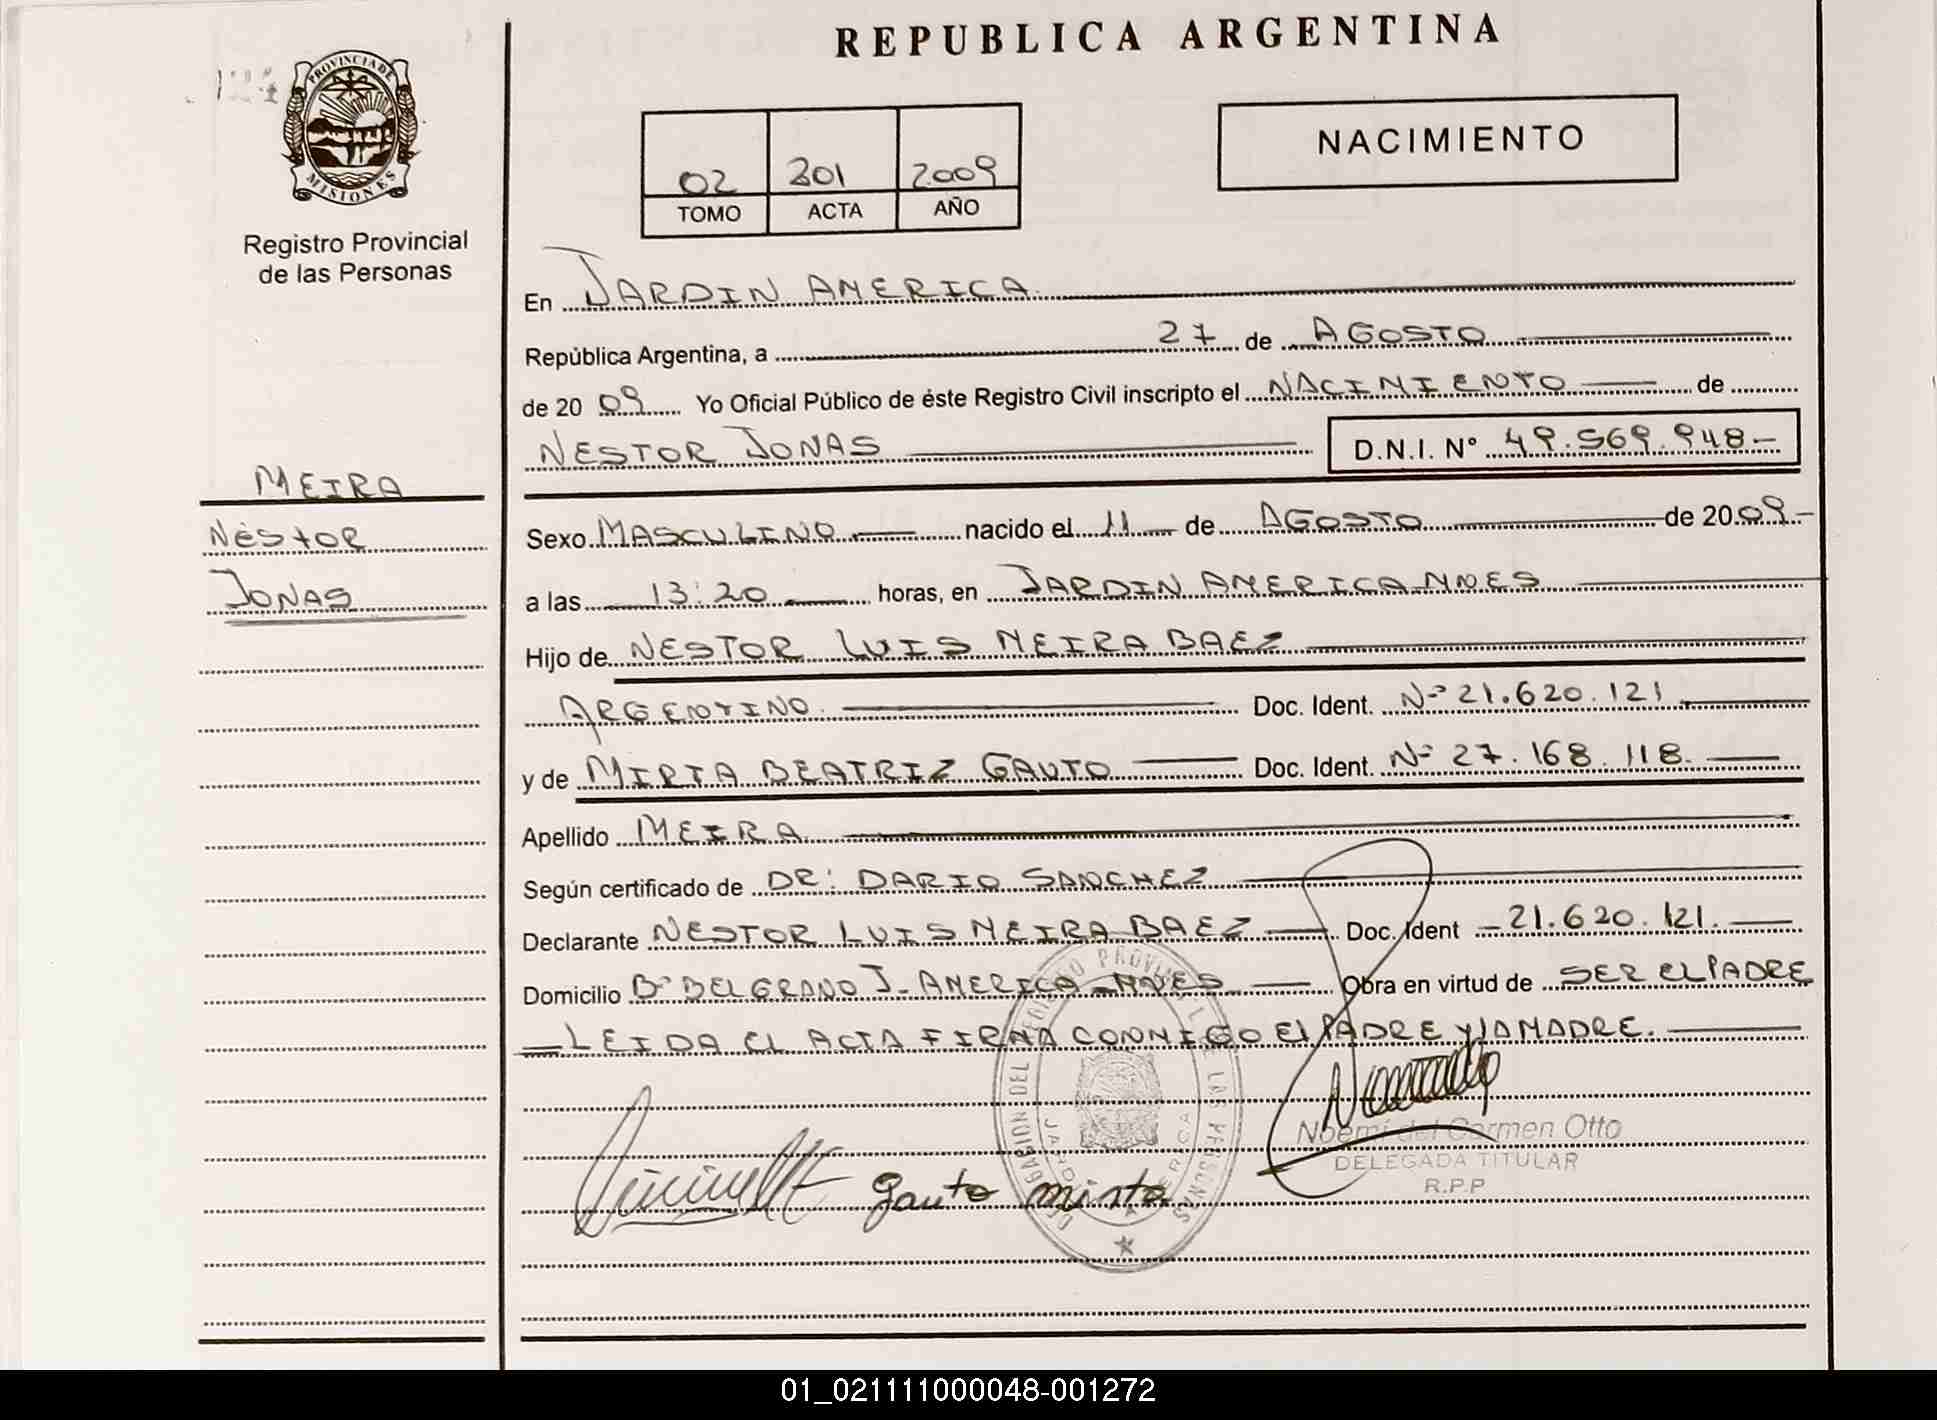 REPUBLICA ARGENTINA
PROVINCIA DE
MISIONES
Registro Provincial
de las Personas
02 301 2009
TOMO ACTA AÑO
NACIMIENTO
En JARDIN AMERICA
República Argentina, a 27 de AGOSTO
de 20 09 Yo Oficial Público de éste Registro Civil inscripto el NACIMIENTO de
NESTOR JONAS D.N.I. N° 49.569.948-
MEIRA
NESTOR
JONAS
Sexo MASCULINO nacido el 11 de AGOSTO de 20 09-
a las 13:20 horas, en JARDIN AMERICA MNES
Hijo de NESTOR LUIS MEIRA BAEZ
ARGENTINO Doc. Ident. N° 21.620.121
y de MIRTA BEATRIZ GAUTO Doc. Ident. N° 27.168.118.
Apellido MEIRA
Según certificado de DR: DARIO SANCHEZ
Declarante NESTOR LUIS MEIRA BAEZ Doc. Ident 21.620.121.
Domicilio B° BELGRANO J- AMERICA MNES Obra en virtud de SER EL PADRE
LEIDA EL ACTA FIRMA CONMIGO EL PADRE Y LA MADRE.
Noemí del Carmen Otto
DELEGADA TITULAR
R.P.P
gauto mirta
01_021111000048-001272